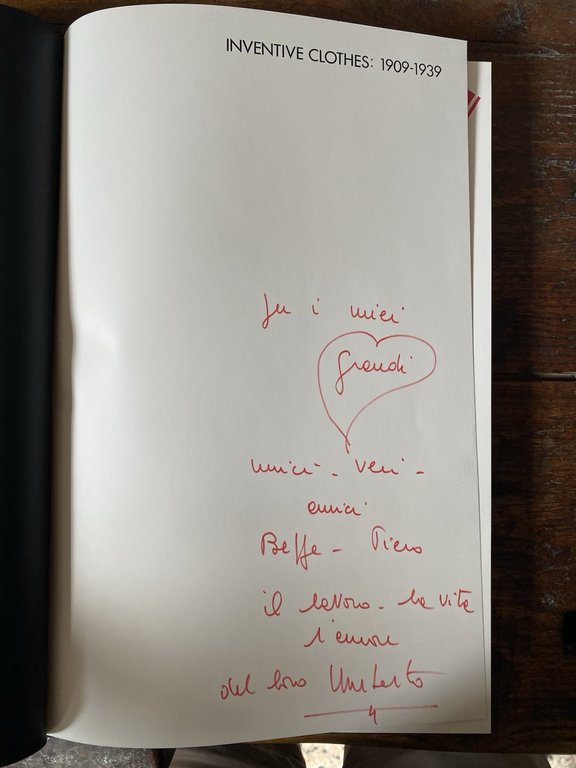 INVENTIVE CLOTHES: 1909-1939
i miei
Grandi
unici - veri -
amici
Beppe - Piero
il lavoro - la vita
l'amore
del loro Umberto